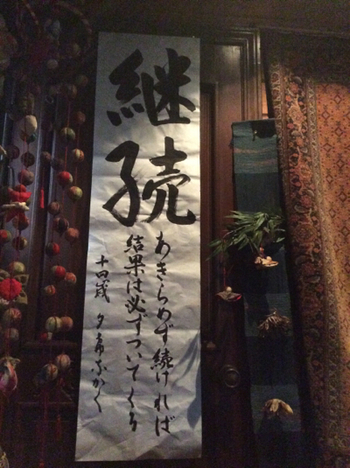 継続
あきらめず続ければ
結果は必ずついてくる
十四歳